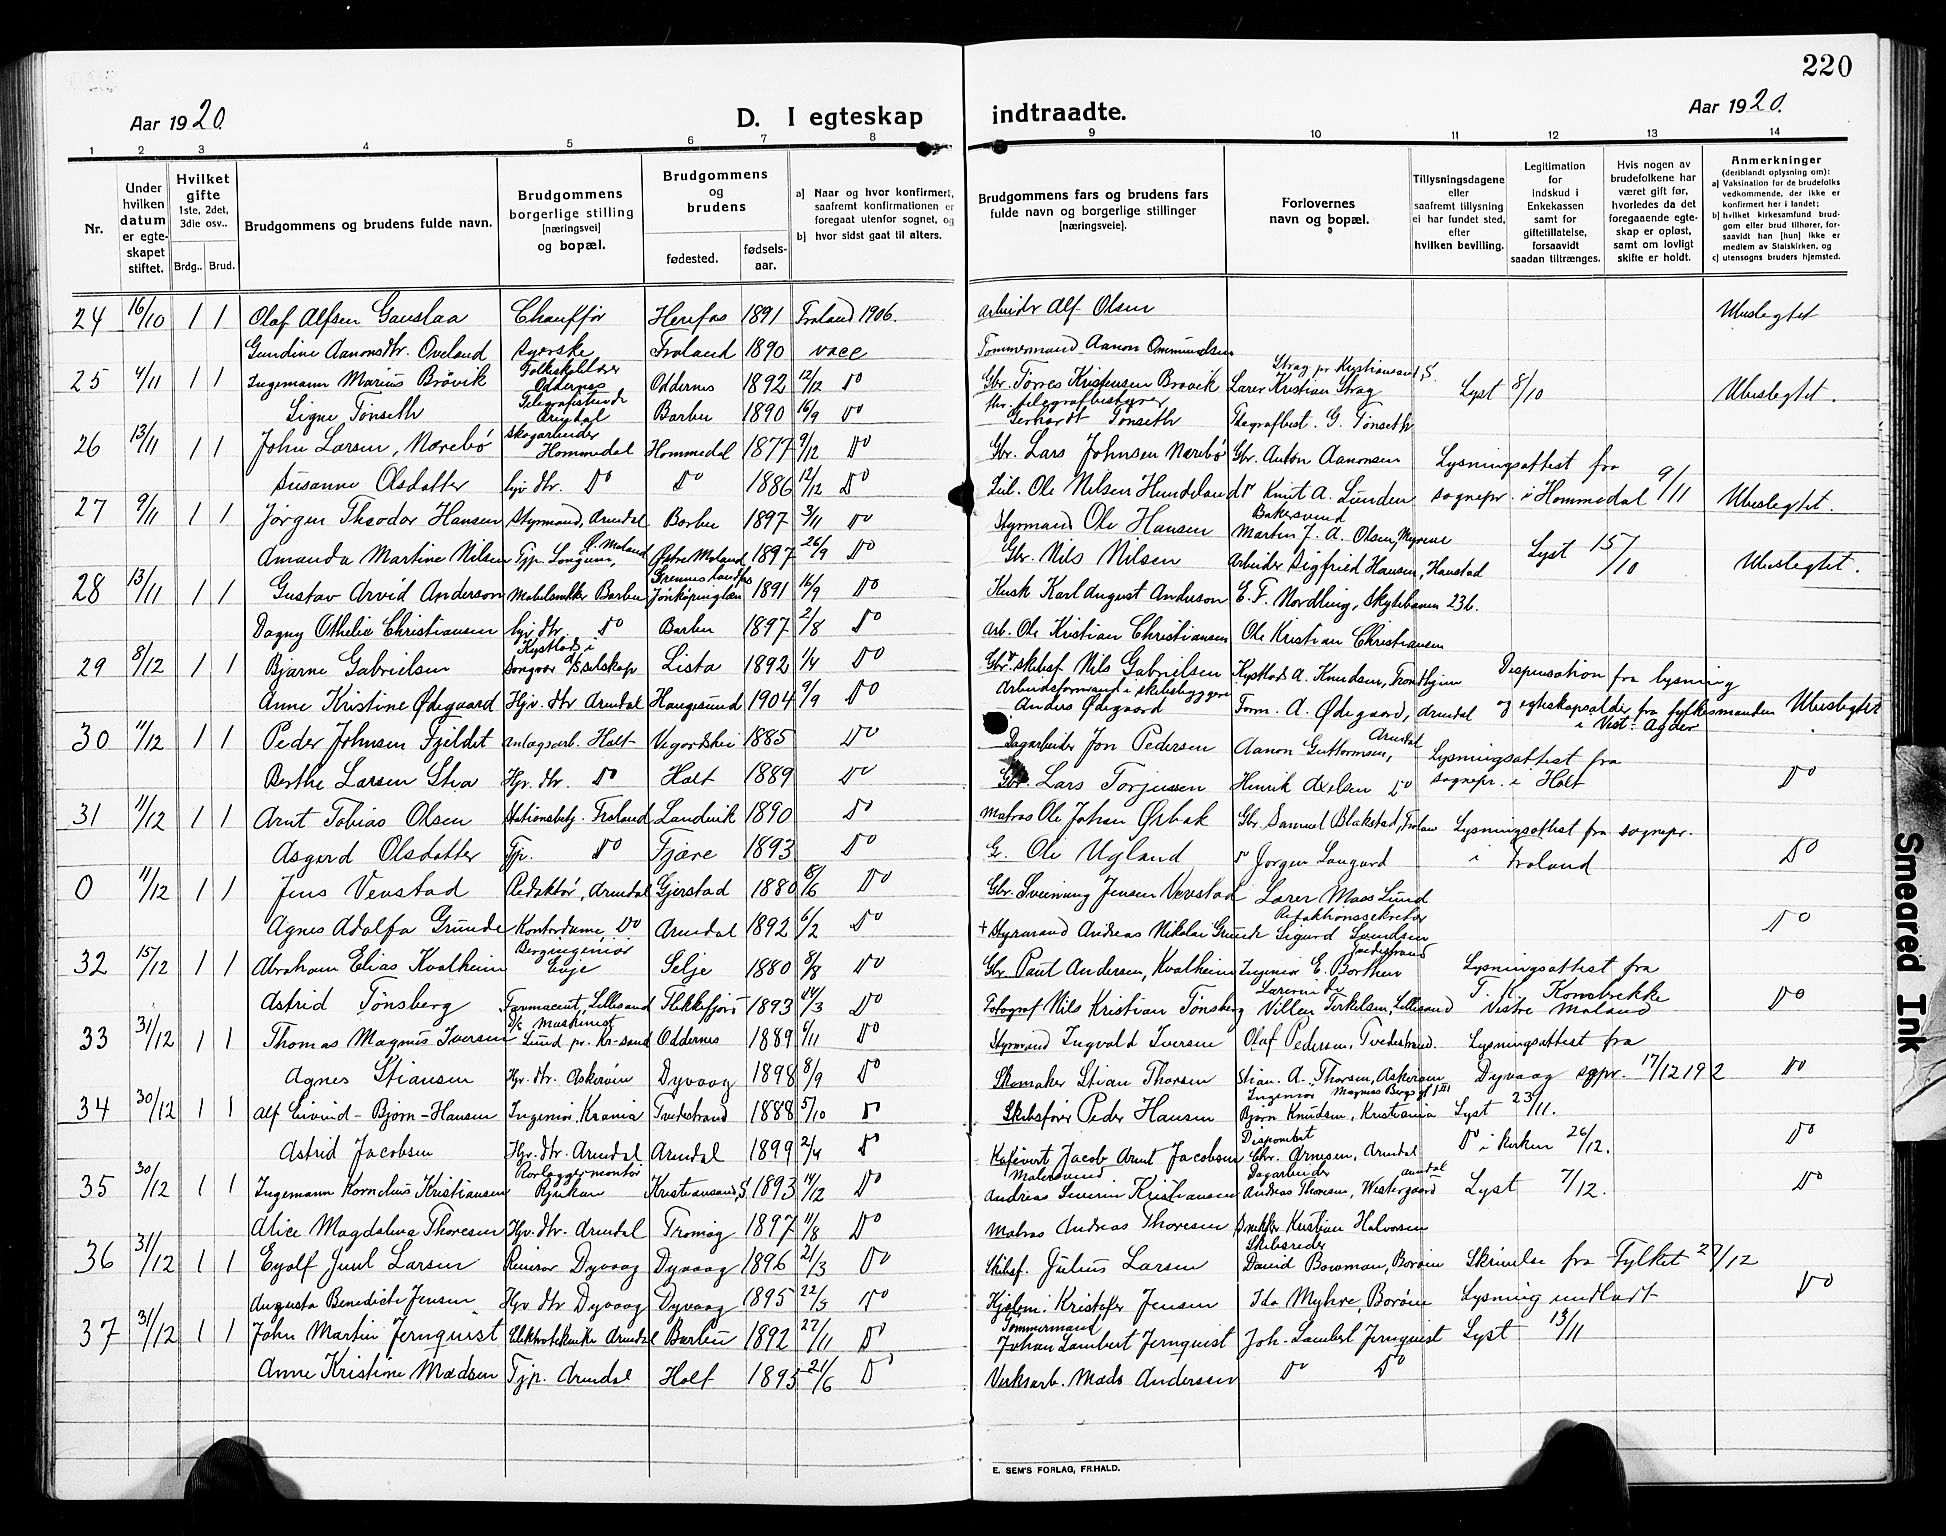 220
Aar 1920.
D. I egteskap indtraadte.
Aar 1920.
1 2 3 4 5 6 7 8 9 10 11 12 13 14
Nr.
Under hvilken datum er egteskapet stiftet.
Hvilket gifte 1ste, 2det, 3die osv..
Brdg.. Brud.
Brudgommens og brudens fulde navn.
Brudgommens borgerlige stilling [næringsvei] og bopæl.
Brudgommens og brudens
fødested.
fødselsaar.
a) Naar og hvor konfirmert, saafremt konfirmationen er foregaat utenfor sognet, og
b) hvor sidst gaat til alters.
Brudgommens fars og brudens fars fulde navn og borgerlige stillinger [næringsveie].
Forlovernes navn og bopæl.
Tillysningsdagene eller saafremt tillysning ei har fundet sted, efter hvilken bevilling.
Legitimation for Indskud i Enkekassen samt for giftetillatelse, forsaavidt saadan tiltrænges.
Hvis nogen av brudefolkene har været gift før, hvorledes da det foregaaende egteskap er opløst, samt om lovligt skifte er holdt.
Anmerkninger (deriblandt oplysning om):
a) Vaksination for de brudefolks vedkommende, der ikke er konfirmert her i landet;
b) hvilket kirkesamfund brudgom eller brud tilhører, forsaavidt han [hun] ikke er medlem av Statskirken, og
c) utensogns bruders hjemsted.
24 16/10 1 1 Olaf Alfsen Gauslaa Chauffør Herefos 1891 Froland 1906. Arbeider Alf Olsen Ubeslegtet
Gundine Aanonsdtr. Oveland syerske Froland 1890 vacc Tømmermand Aanon Ommundsen
25 4/11 1 1 Ingemann Marius Brøvik Folkeskolelærer Oddernes Oddernes 1892 12/12 Do Gbr. Tørres Kristensen Brøvik Lærer Kristian Strag Strag pr Kristiansand, S. Lyst 8/10 Ubeslegtet.
Signe Tønseth Arendal Barbu 1890 16/9 Do telegrafbestyrer Gerhardt Tønseth Telegrafbest. G. Tønseth
26 13/11 1 1 John Larsen, Nærebø Skogarbeider Hommedal Hommedal 1877 9/12 Do Gbr. Lars Johnsen Nærebø Gbr. Anton Aanonsen Lysningsattest fra
Susanne Olsdatter Do Do 1886 12/12 Do Ole Nilsen Hundeland Do Knut A. Lunden sognepr. i Hommedal 9/11 Ubeslegtet.
27 9/11 1 1 Jørgen Theodor Hansen Styrmand, Arendal Barbu 1897 3/11 Do Styrmand Ole Hansen Bakersvend Martin J. A. Olsen, Myrene
Amanda Martine Nilsen Tjp. Longum, Ø. Moland Østre Moland 1897 26/9 Do Gbr. Nils Nilsen Arbeider Sigfried Hansen, Haustad Lyst 15/10 Ubeslegtet.
28 13/11 1 1 Gustav Arvid Anderson Møbelsnekker Barbu Jönköpinglän 1891 16/9 Do Kusk Karl August Anderson E. F. Nordling, Skytebanen 236.
Dagny Othelie Christiansen Do Barbu 1897 2/8 Do Arb. Ole Kristian Christiansen Ole Kristian Christiansen
29 8/12 1 1 Bjarne Gabrielsen Kystlods i Songvor Lista 1892 1/4 Do Gbr. skibsf. Nils Gabrielsen Kystlods A. Knudsen, Trondhjem Dispensation fra lysning
Anne Kristine Ødegaard Hjv. dtr Arendal Haugesund 1904 9/9 Do Arbeidsformand i skibsbyggeri Anders Ødegaard Form. A. Ødegaard, Arendal og egteskapsalder fra fylkesmanden i Vest. Agder Ubeslegtet
30 11/12 1 1 Peder Johnsen Fjeldet Anlægsarb. Holt Vegordshei 1885 Do Dagarbeider Jon Pedersen Aanon Guttormsen, Arendal Lysningsattest fra
Berthe Larsen Stea Hjv. dtr. Do Holt 1889 Do Gbr. Lars Torjussen Henrik Axelsen Do sognepr. i Holt Do
31 11/12 1 1 Arnt Tobias Olsen Stationsbetj. Froland Landvik 1890 Do Matros Ole Johan Ørbæk Gbr. Samuel Blakstad, Lysningsattest fra sognepr.
Asgerd Olsdatter Tjp. Do Fjære 1893 Do G. Ole Ugland Do Jørgen Langerd i Froland Do
0 11/12 1 1 Jens Vevstad Redaktør, Arendal Gjerstad 1880 8/6 Do Gbr. Sveinung Jensen Vevstad Lærer Maas Lund
Agnes Adolfa Grunde Kontordame, Do Arendal 1892 6/2 Do + Styrmand Andreas Nikolai Grunde Redaktionssekretær Sigurd Svendsen Do
32 15/12 1 1 Abraham Elias Kvalheim Bergingeniør Evje Selje 1880 8/8 Do Gbr Paul Andersen, Kvalheim Ingeniør E. Borthen Lysningsattest fra
Astrid Tønsberg Farmaceut, Lillesand Flekkefjord 1893 14/3 Do Fotograf Nils Kristian Tønsberg Lærerinde Terkelsen, Lillesand Vestre Moland Do
33 31/12 1 1 Thomas Magnus Iversen Maskinist Lund pr. Kr-sand Oddernes 1889 6/11 Do Styrmand Ingvald Iversen Olaf Pedersen, Tvedestrand. Lysningsattest fra
Agnes Stiansen Hjv. dtr. Askerøen Dyvaag 1898 8/9 Do Skomaker Stian Thorsen Stian. A. Thorsen, Askerøen Dyvaag sgpr. 17/12 192 Do
34 30/12 1 1 Alf Eivind-Bjørn-Hansen Ingeniør, Krania Tvedestrand 1888 5/10 Do Skibsfører Peder Hansen Ingeniør Bjørn Knudsen, Kristiania Lyst 23/11.
Astrid Jacobsen Hjv. dtr. Arendal Arendal 1899 2/4 Do Kafévert Jacob Arnt Jacobsen Disponent Chr. Arnesen, Arendal Do i kirken 26/12. Do
35 30/12 1 1 Ingemann Kornelius Kristiansen Rørleggermontør Rjukan Kristiansand, S. 1893 14/12 Do Malersvend Andreas Severin Kristiansen Dagarbeider Andreas Thoresen, Vestergaard Arendal Lyst 7/12. Do
Alice Magdalena Thoresen Hjv. dtr. Arendal Tromøy 1897 11/8 Do Matros Andreas Thoresen Snekker Kristian Halvorsen
36 31/12 1 1 Eyolf Juul Larsen Dyvaag Dyvaag 1896 21/3 Do Skibsf. Julius Larsen Skibsreder David Bowman, Borøen Skrivelse fra Fylket 27/12
Augusta Benedicte Jensen Hjv dtr Dyvaag Dyvaag 1895 22/5 Do Kristofer Jensen Ida Myhre Borøen Lysning undladt Do
37 31/12 1 1 John Martin Jernquist Elektrotekniker Arendal Barbu 1892 27/11 Do Tømmermand Johan Lambert Jernquist Joh. Lambert Jernquist Lyst 13/11
Anne Kristine Madsen Tjp. Arendal Holt 1895 21/6 Do Verksarb. Mads Andersen Do Do
E. SEM'S FORLAG, FR.HALD.
Smeared Ink